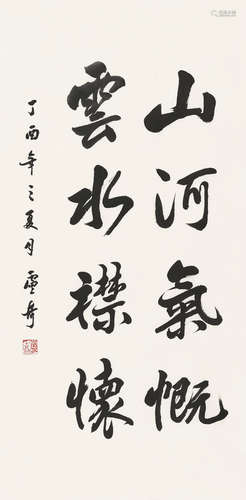 山河氣慨
雲水襟懷
丁酉年之夏月